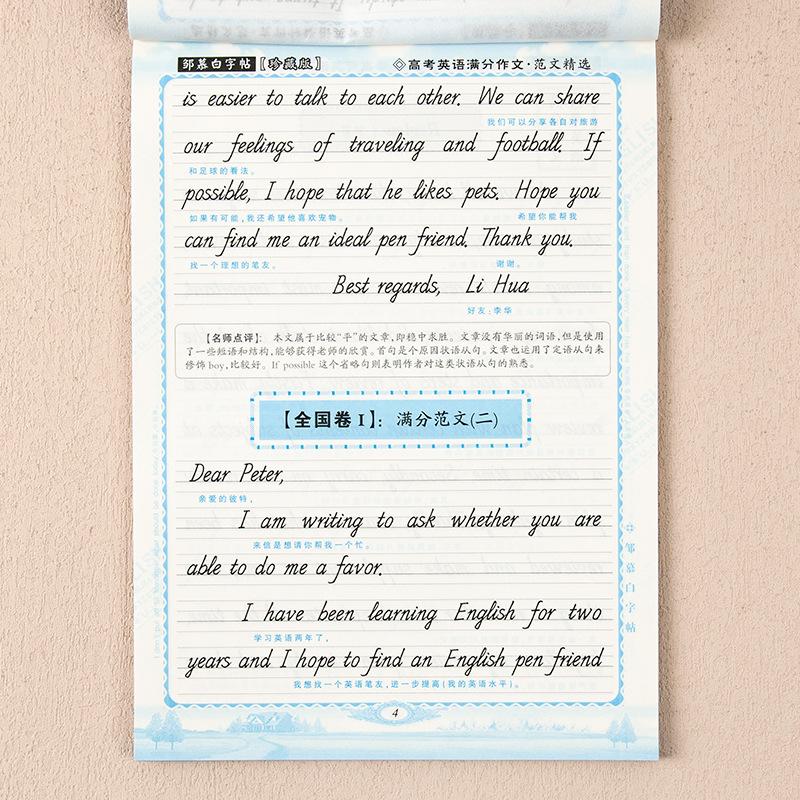 邹慕白字帖【珍藏版】 ◇高考英语满分作文·范文精选
is easier to talk to each other. We can share
我们可以分享各自对旅游
our feelings of traveling and football. If
和足球的看法。
possible, I hope that he likes pets. Hope you
如果有可能,我还希望他喜欢宠物。 希望你能帮我
can find me an ideal pen friend. Thank you.
找一个理想的笔友。 谢谢。
Best regards, Li Hua
好友:李华
【名师点评】: 本文属于比较“平”的文章,即稳中求胜。文章没有华丽的词语,但是使用
了一些短语和结构,能够获得老师的欣赏。首句是个原因状语从句。文章也运用了定语从句来
修饰boy,比较好。If possible 这个省略句则表明作者对这类状语从句的熟悉。
【全国卷 I】: 满分范文(二)
Dear Peter,
亲爱的彼特,
I am writing to ask whether you are
来信是想请你帮我一个忙。
able to do me a favor.
I have been learning English for two
学习英语两年了,
years and I hope to find an English pen friend
我想找一个英语笔友,进一步提高(我的英语水平)。
4
邹慕白字帖